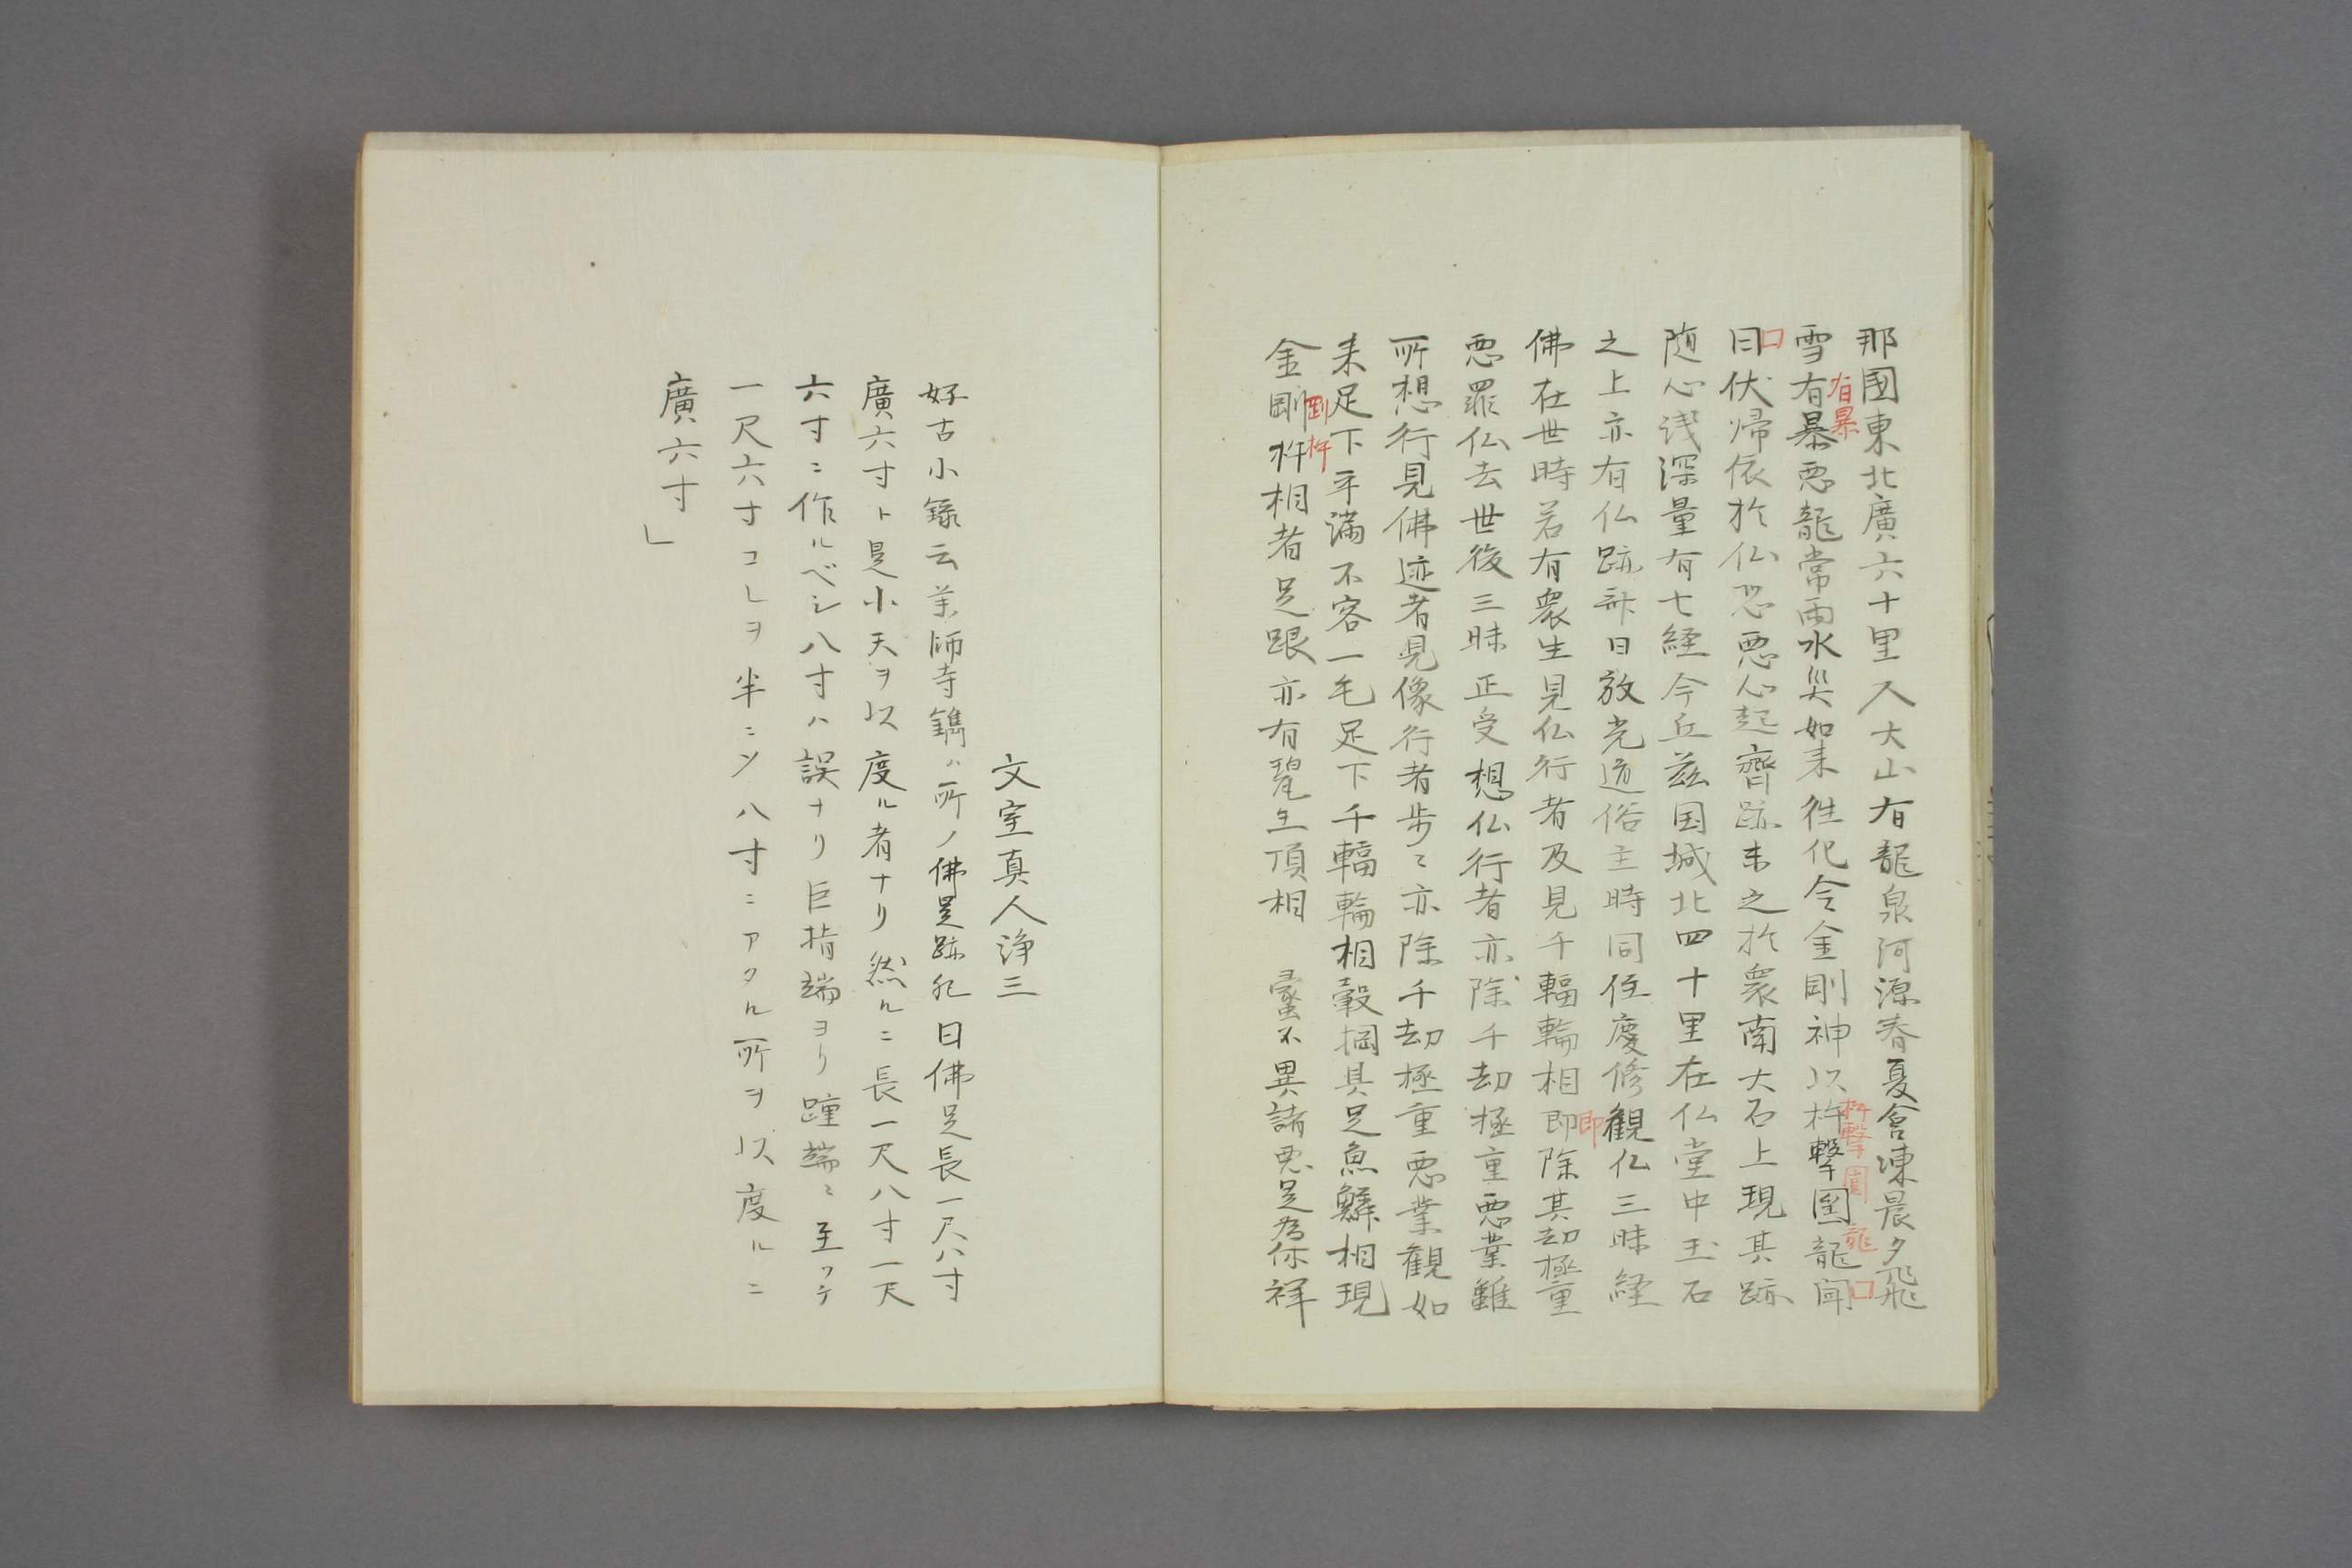 那國東北廣六十里入大山有龍泉河源春夏含凍晨夕飛
有暴
雪有暴悪龍常雨水災如来徃化令金剛神以杵撃圁龍聞
杵撃圁龍口
口
日伏帰依於仏恐悪心起齊跡未之於衆南大石上現其跡
随心浅深量有七経今丘茲国城北四十里在仏堂中玉石
之上亦有仏跡斎日放光道俗主時同徃慶修観仏三昧経
佛在世時若有衆生見仏行者及見千輻輪相即除其劫極重
即
悪罪仏去世後三昧正受想仏行者亦除千劫極重悪業雖
所想行見佛迹者見像行者歩〻亦除千劫極重悪業観如
来足下平満不容一毛足下千輻輪相轂掴具足魚鱗相現
剛杵
金剛杵相者足跟亦有𣑊王頂相 蠡不異諸悪是為休祥
文室真人浄三
好古小録云薬師寺鐫ハ所ノ佛足跡記曰佛足長一尺八寸
廣六寸ト是小天ヲ以度ル者ナリ然ルニ長一尺八寸一天
六寸ニ作ルベシ八寸ハ誤ナリ巨指端ヨリ踵端ニ至ッテ
一尺六寸コレヲ半ニシ八寸ニアタル所ヲ以度ルニ
廣六寸」